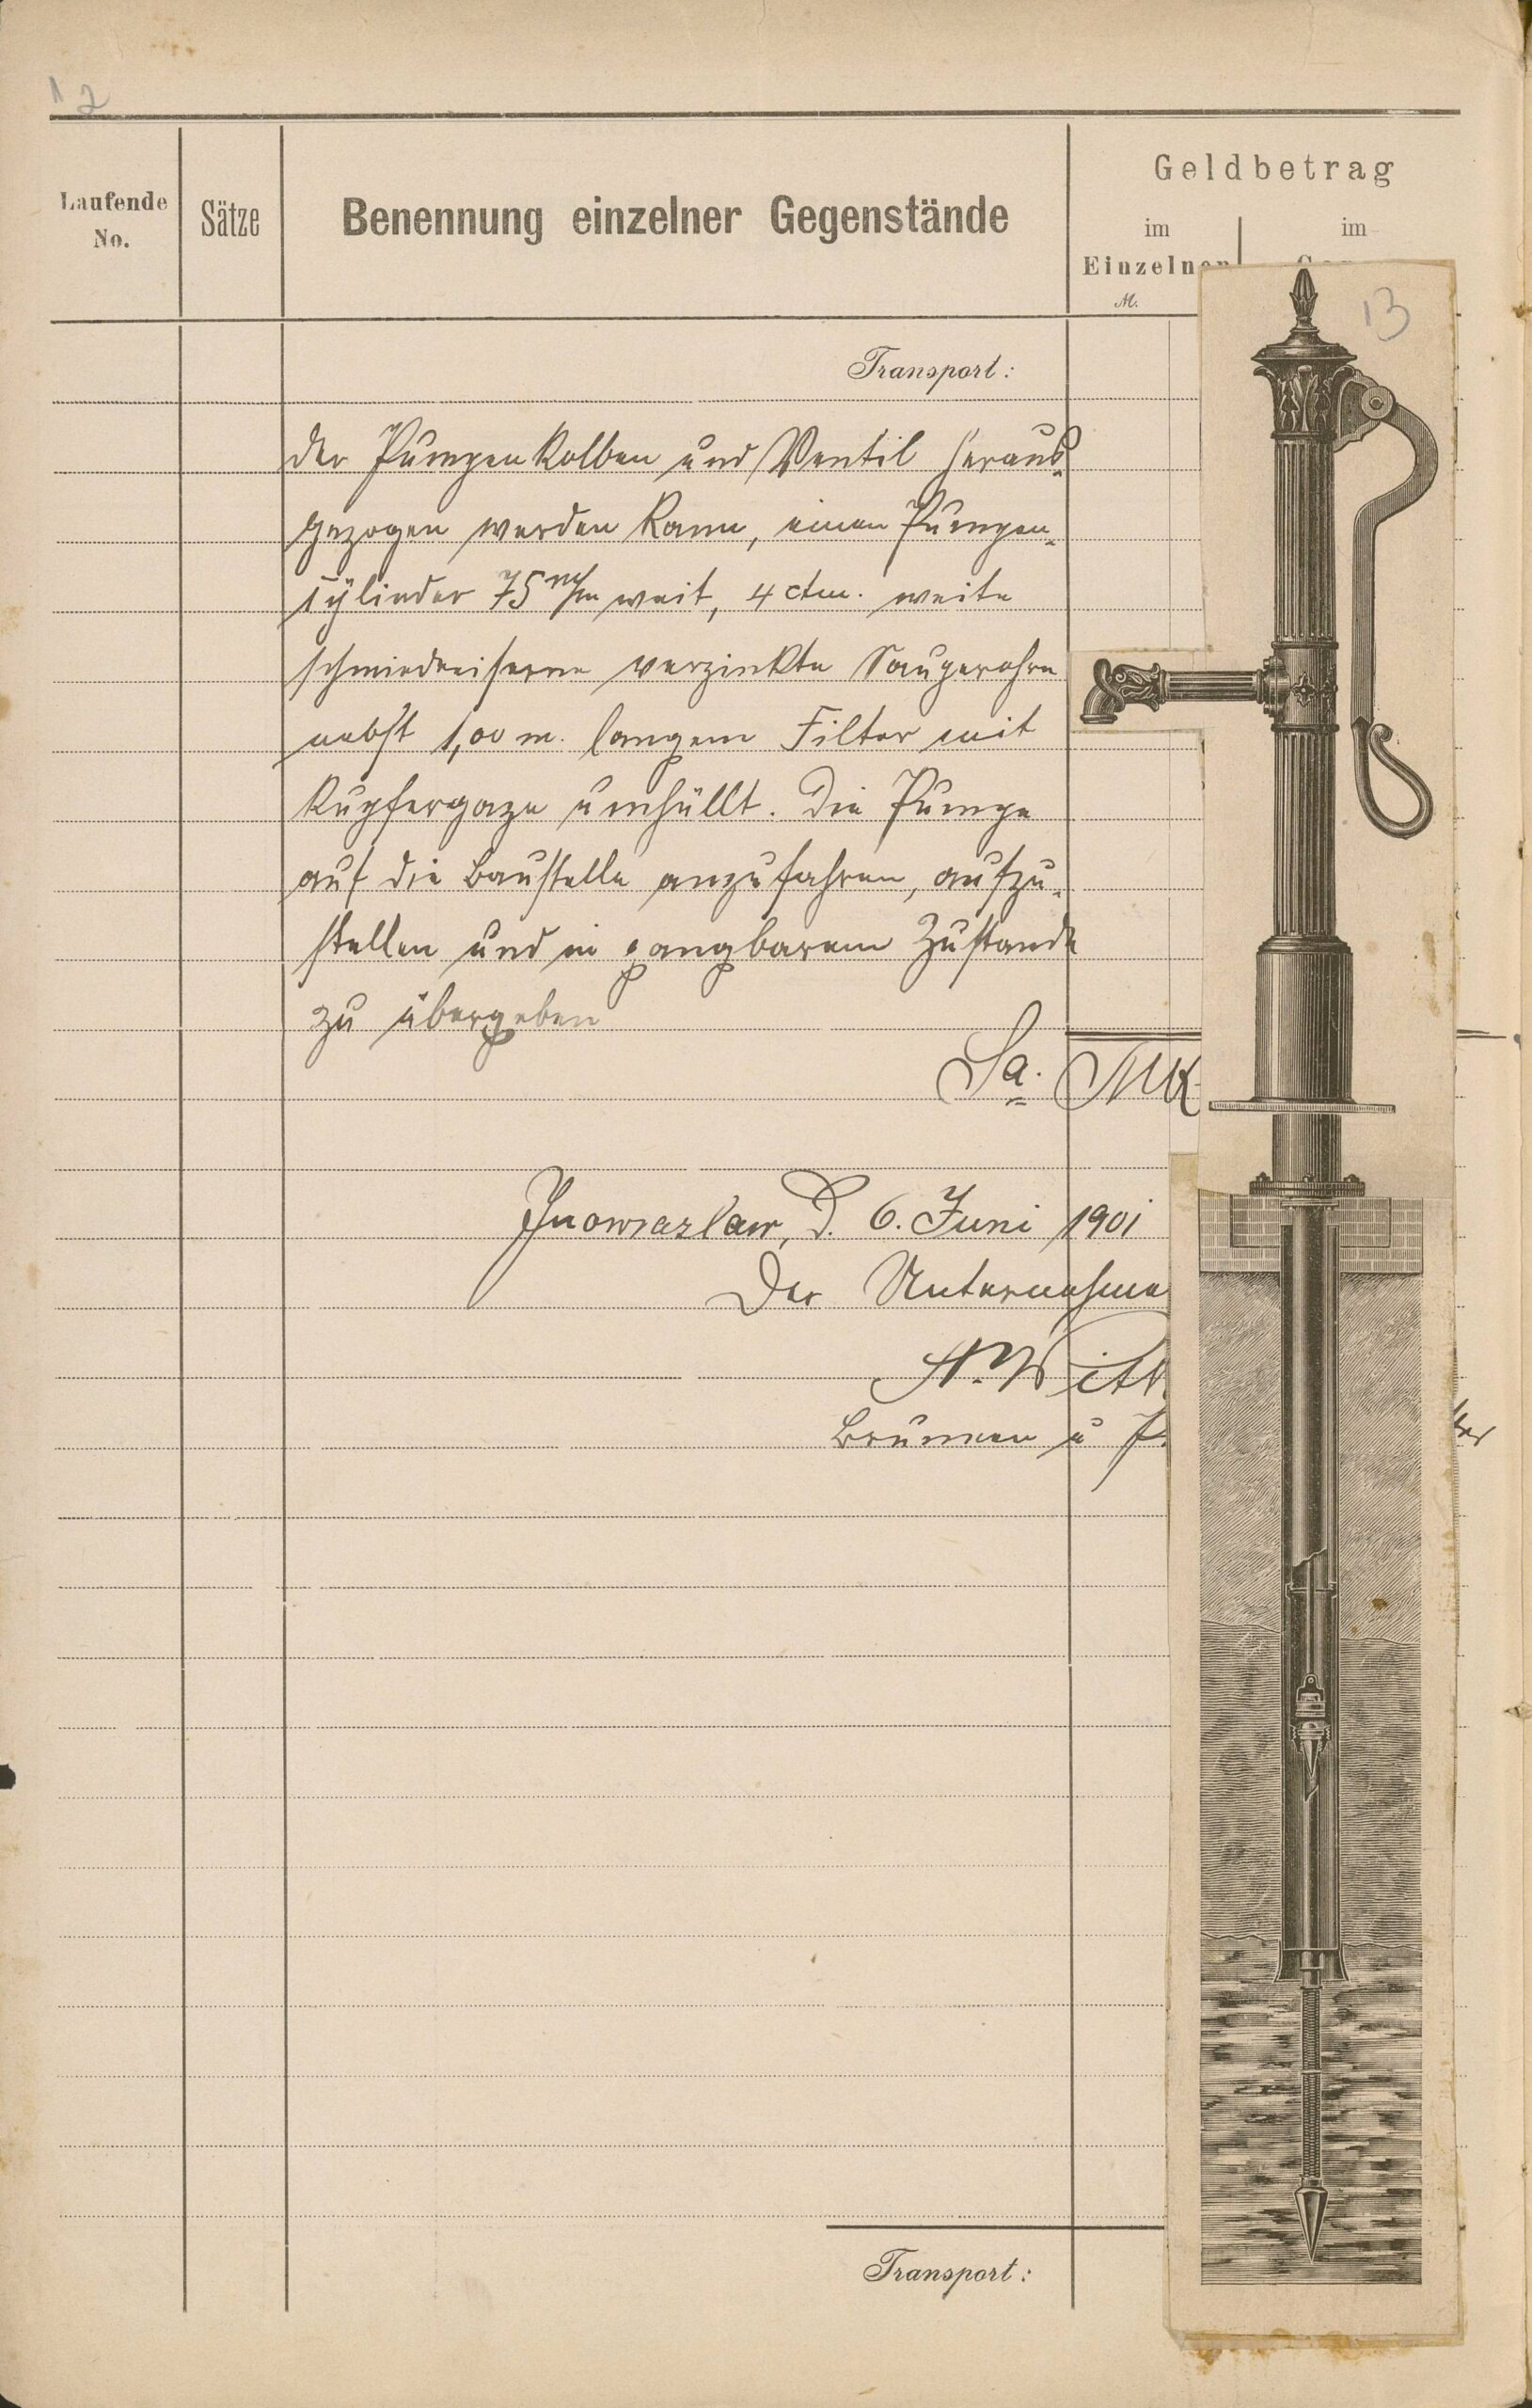 12
Geldbetrag
Laufende
No.
Sätze
Benennung einzelner Gegenstände
im
im
Einzelnen
M.
13
Transport:
der Pumpenkolben und Ventil heraus-
gezogen werden kann, einen Pumpen-
cylinder 75 m/m weit, 4 ctm. weite
schmiedeiserne verzinkte Saugerohre
nebst 1,00 m. langem Filter mit
Kupfergaze umhüllt. Die Pumpe
auf die Baustelle anzufahren, aufzu-
stellen und in gangbarem Zustande
zu übergeben
Sa. Mk
Inowrazlaw, d. 6. Juni 1901
Der Unternehme
H. Witt
Brunnen u P
Transport: